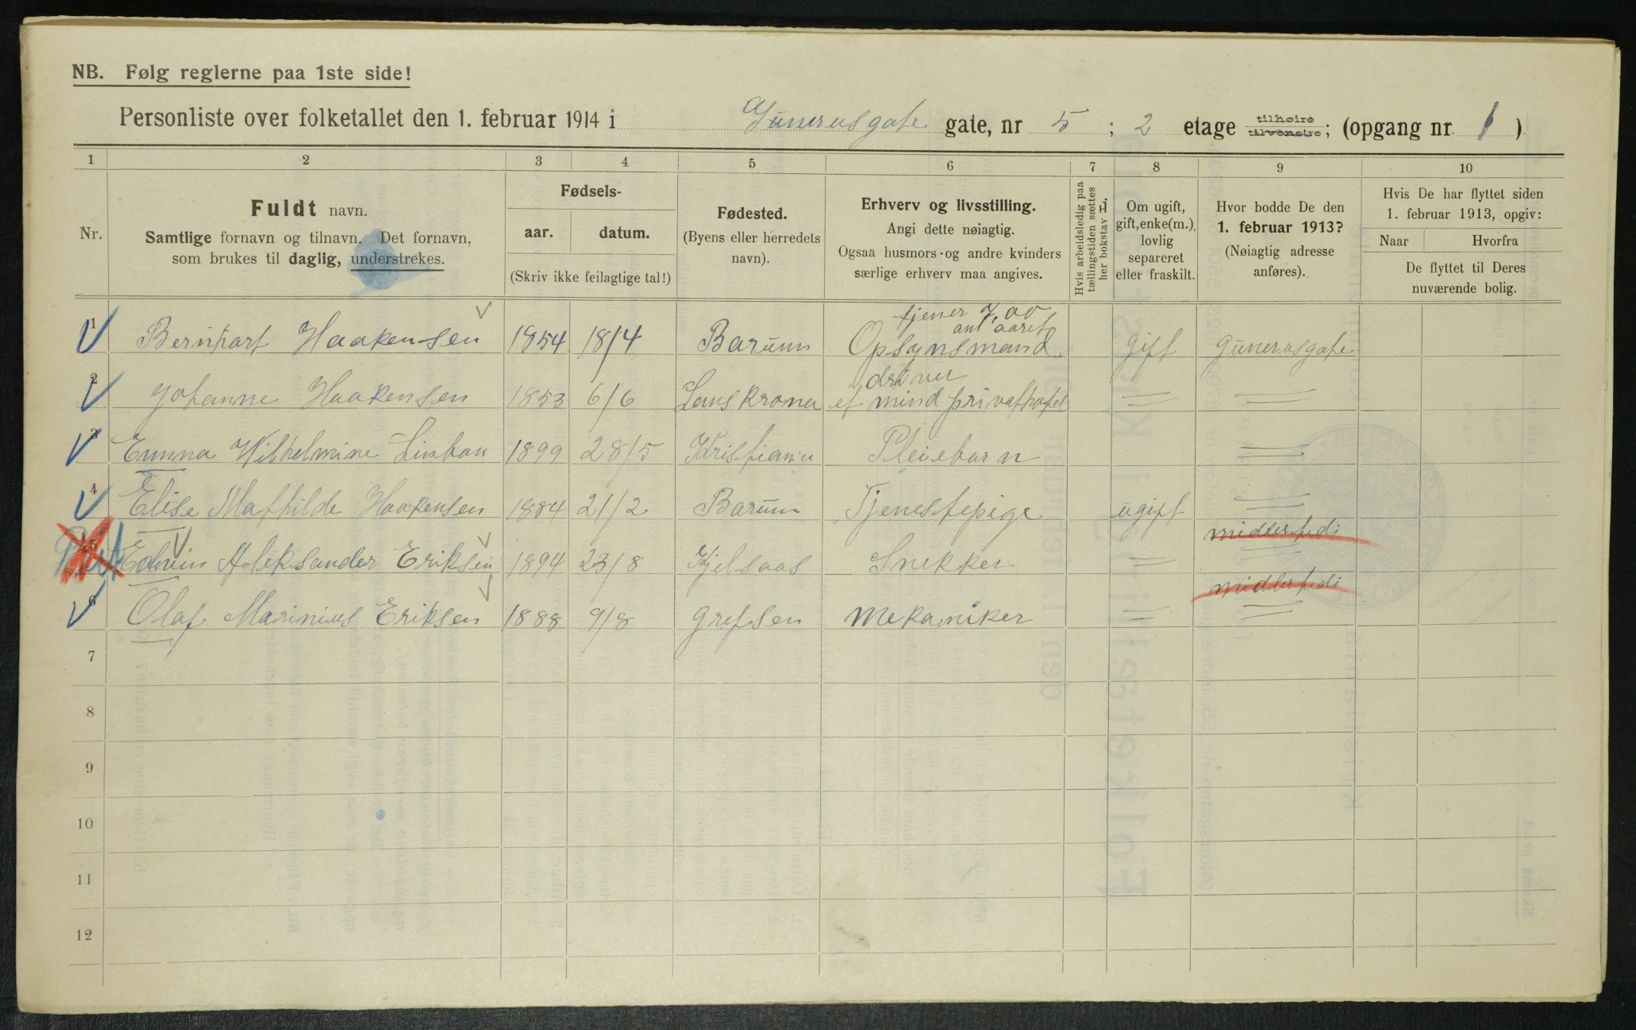 NB. Følg reglerne paa 1ste side!
Personliste over folketallet den 1. februar 1914 i Gunerusgate gate, nr 5 ; 2 etage tilhøire tilvenstre; (opgang nr. 1 ).
1 2 3 4 5 6 7 8 9 10
Nr.
Fuldt navn.
Samtlige fornavn og tilnavn. Det fornavn,
som brukes til daglig, understrekes.
Fødsels-
aar. datum.
(Skriv ikke feilagtige tal!)
Fødested.
(Byens eller herredets
navn).
Erhverv og livsstilling.
Angi dette nøiagtig.
Ogsaa husmors- og andre kvinders
særlige erhverv maa angives.
Hvis arbeidsledig paa
tællingstiden sættes
her bokstav L.
Om ugift,
gift, enke(m.),
lovlig
separeret
eller fraskilt.
Hvor bodde De den
1. februar 1913?
(Nøiagtig adresse
anføres).
Hvis De har flyttet siden
1. februar 1913, opgiv:
Naar Hvorfra
De flyttet til Deres
nuværende bolig.
tjener 7,00
om aaret
1 Bernhart Haakensen 1854 18/4 Barum Opsynsmand gift Gunerusgate
driver
2 Johanne Haakensen 1853 6/6 Lanskrona et mind privathotel
3 Emma Wilhelmine 1899 28/5 Kristiania Pleiebarn
4 Elise Mathilde Haakensen 1884 21/2 Barum Tjenestepige ugift
midlertidi
5 Edvin Aleksander Eriksen 1894 23/8 Kjelsaas Snekker
midlertidi
6 Olaf Marinius Eriksen 1888 9/8 Grefsen Mekaniker
7
8
9
10
11
12